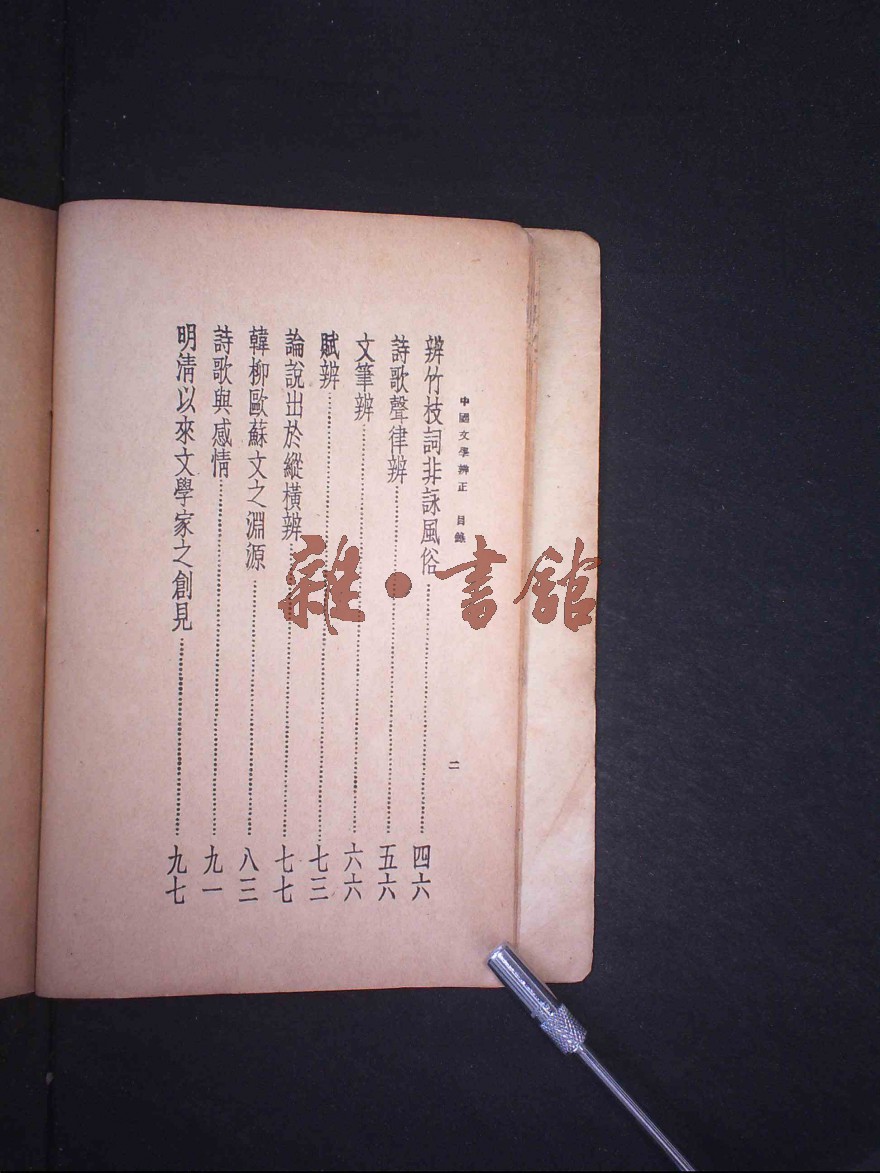 中國文學辨正 目錄 二
辨竹枝詞非詠風俗……四六
詩歌聲律辨……五六
文筆辨……六六
賦辨……七三
論說出於縱橫辨……七七
韓柳歐蘇文之淵源……八三
詩歌與感情……九一
明清以來文學家之創見……九七
雜·書館